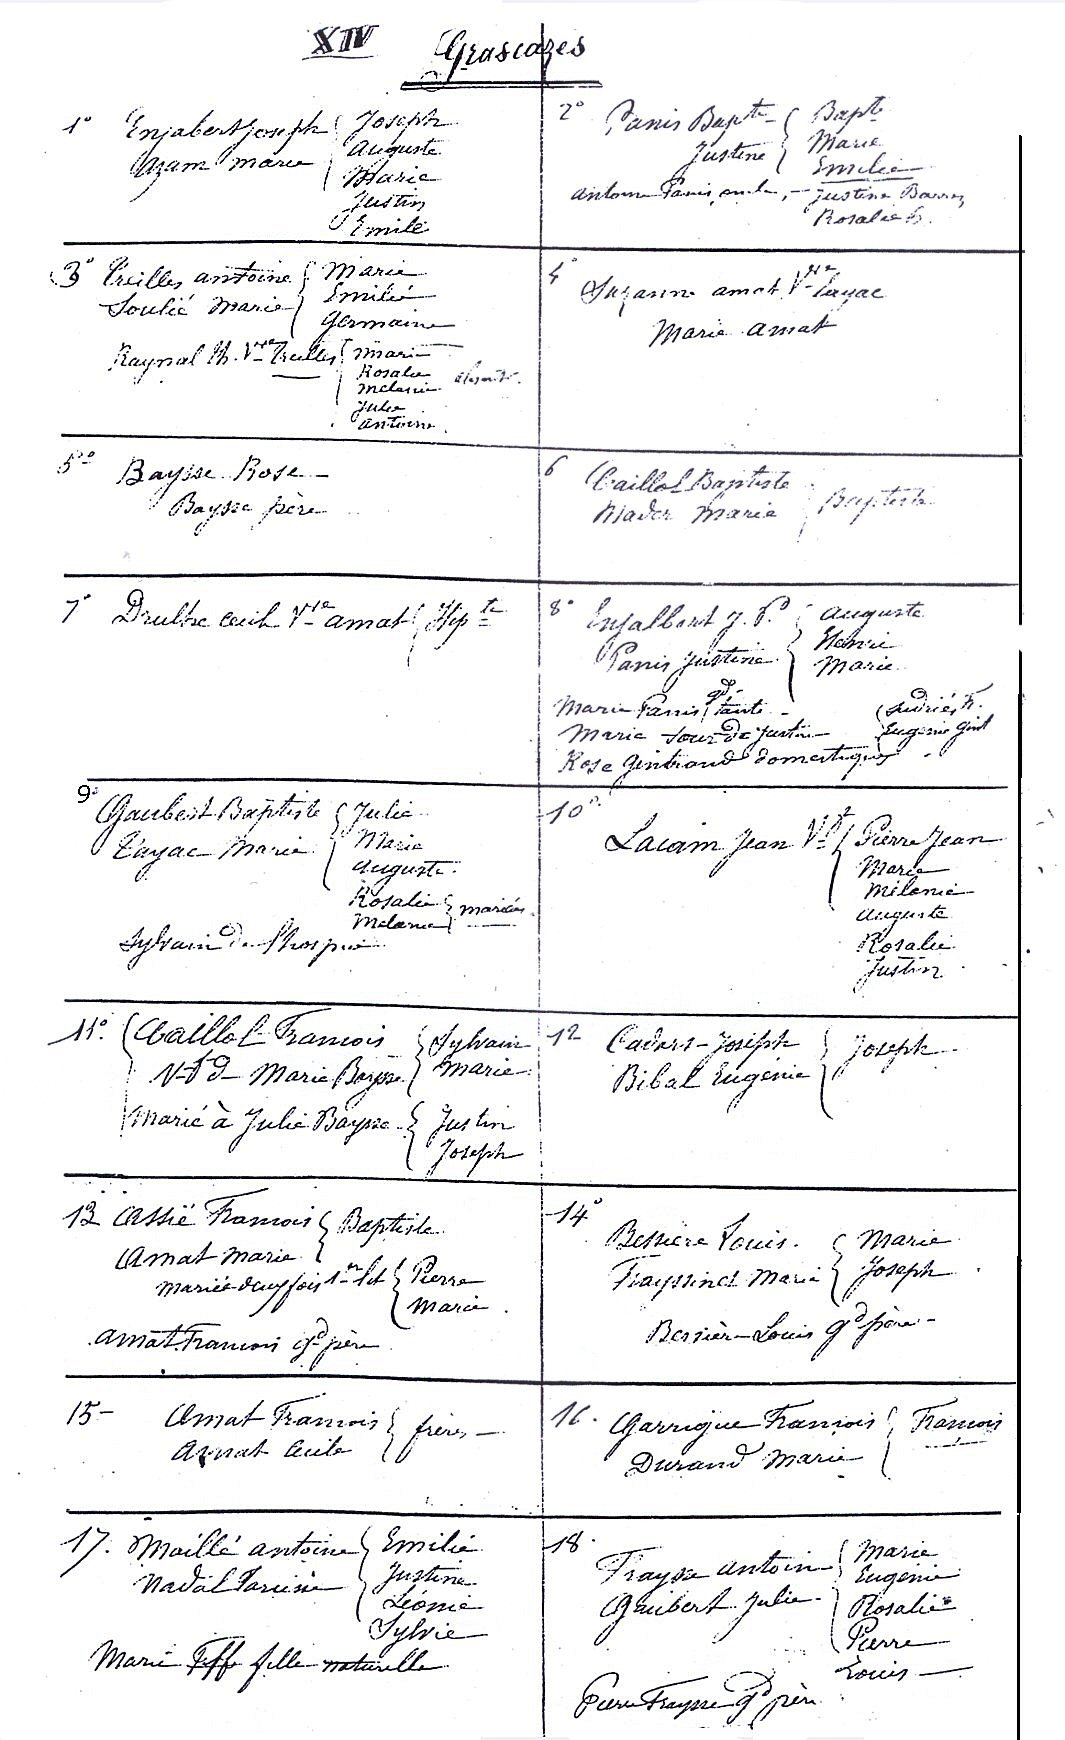 XIV Grascazes
1° Enjabert Joseph Joseph
Azam Marie Auguste
Marie
Justin
Emile
2° Panis Bapte Bapte
Justine Marie
Emilie
Antoine Panis, oncle, - Justine Barrez
Rosalie
3° Treilles Antoine Marie
Soulié Marie Emilié
Germaine
Raynal Vve Treilles Marie
Rosalie
Melanie
Julie
Antoine
4° Suzanne Amat Vve Tayac
Marie Amat
5° Baysse Rose -
Baysse père
6 Caillol Baptiste Baptiste
Nader Marie
7° Drulhe Cécile Vve Amat Hipte
8° Enjalbert J. P. Auguste
Panis Justine Henri
Marie
Marie Panis gd tante -
Marie soeur de Justine Eugénie
Rose domestiques
9° Gaubert Baptiste Julie
Tayac Marie Marie
Auguste
Rosalie
Melanie mariées
Sylvain de l'hospice
10° Lacam Jean Vf Pierre Jean
Marie
Mélanie
Auguste
Rosalie
Justin
11° Caillol Francois Sylvain
Marie Baysse Marie
Marié à Julie Baysse Justin
Joseph
12 Cadars Joseph Joseph
Bibal Eugénie
13 Assié Francois Baptiste
Amat Marie
mariée deux fois 1er lit Pierre
Marie
Amat Francois gd père
14° Bessiere Louis. Marie
Frayssinet Marie Joseph
Bessière Louis gd père -
15- Amat Francois frères -
Amat Cecile
16. Garrigue Francois Francois
Durand Marie
17. Maillé Antoine Emilie
Nadal Justine
Léonie
Sylvie
Marie fille naturelle
18. Traysse Antoine Marie
Gaubert Julie Eugénie
Rosalie
Pierre
Louis -
Pierre Traysse gd père